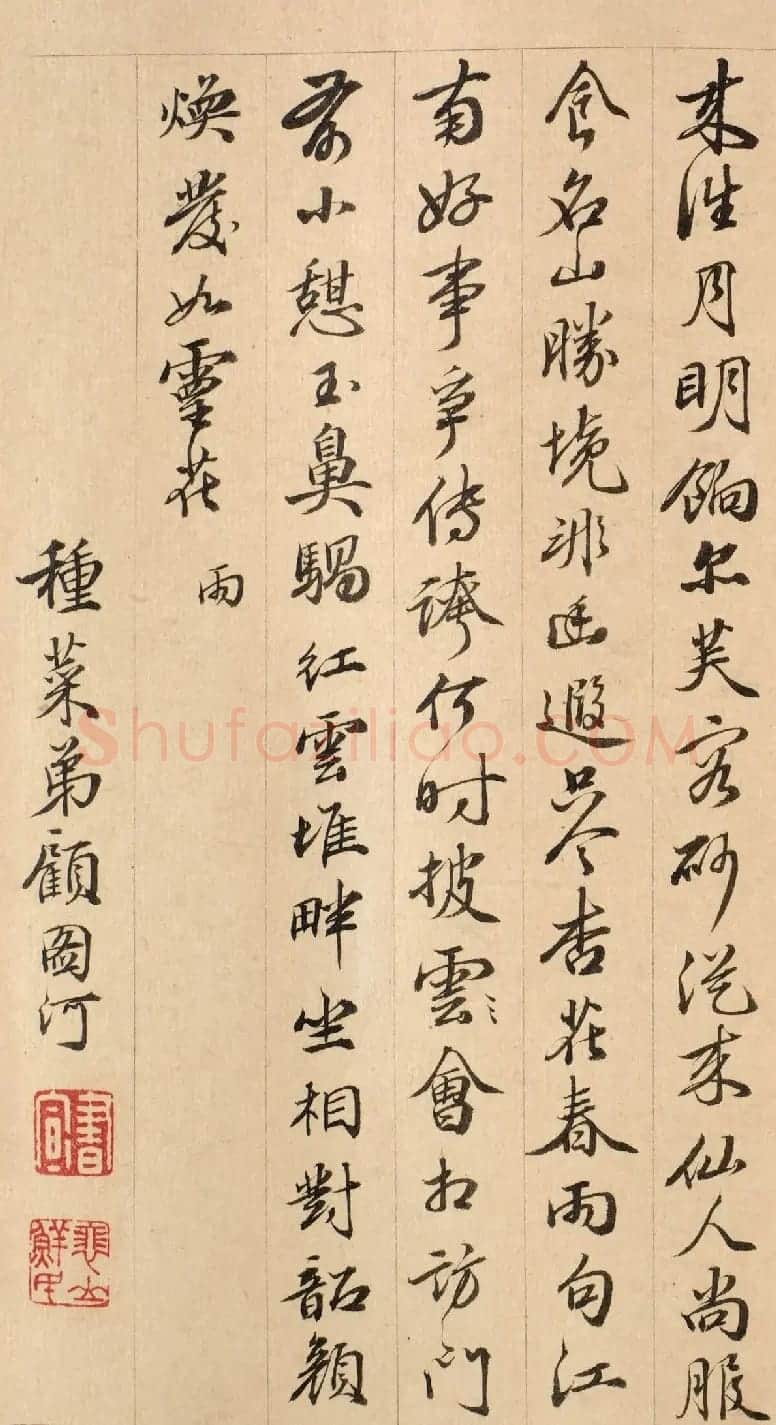 来往月明餉尔芙容砂從来仙人尚服
食名山勝境非幽遐只今杏花春雨句江
南好事争傳誇何时披雲〻會相訪門
前小憩玉鼻騧紅雲堆畔坐相對韶顔
煥發如靈花 雨
種菜弟顧圖河
Shufaziliao.COM